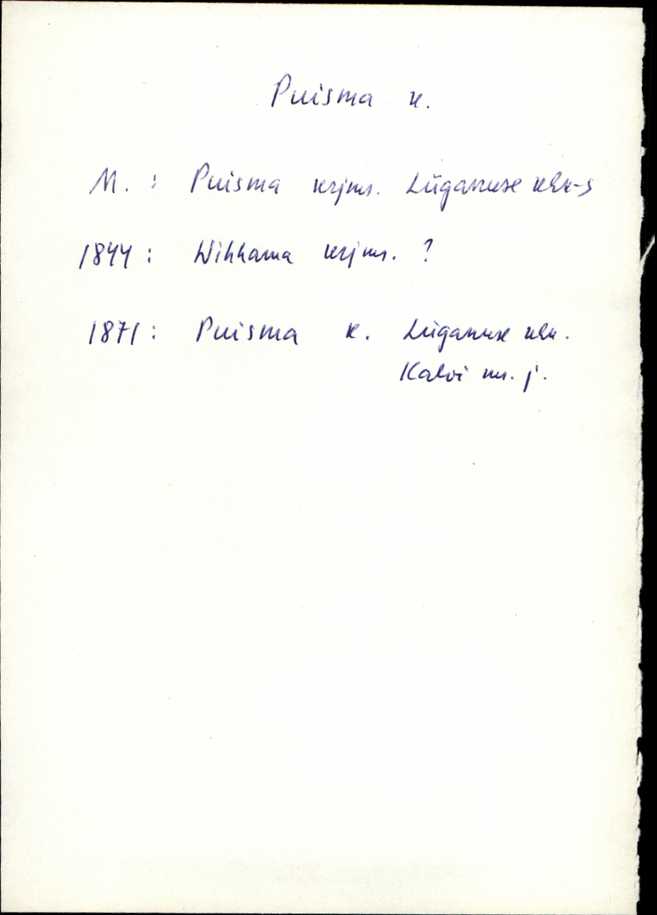 Puisma k.
M. : Puisma krjms. Lüganuse khk-s
1844 : Wihhama krjms. ?
1871 : Puisma k. Lüganuse khk.
Kalvi ms. j.